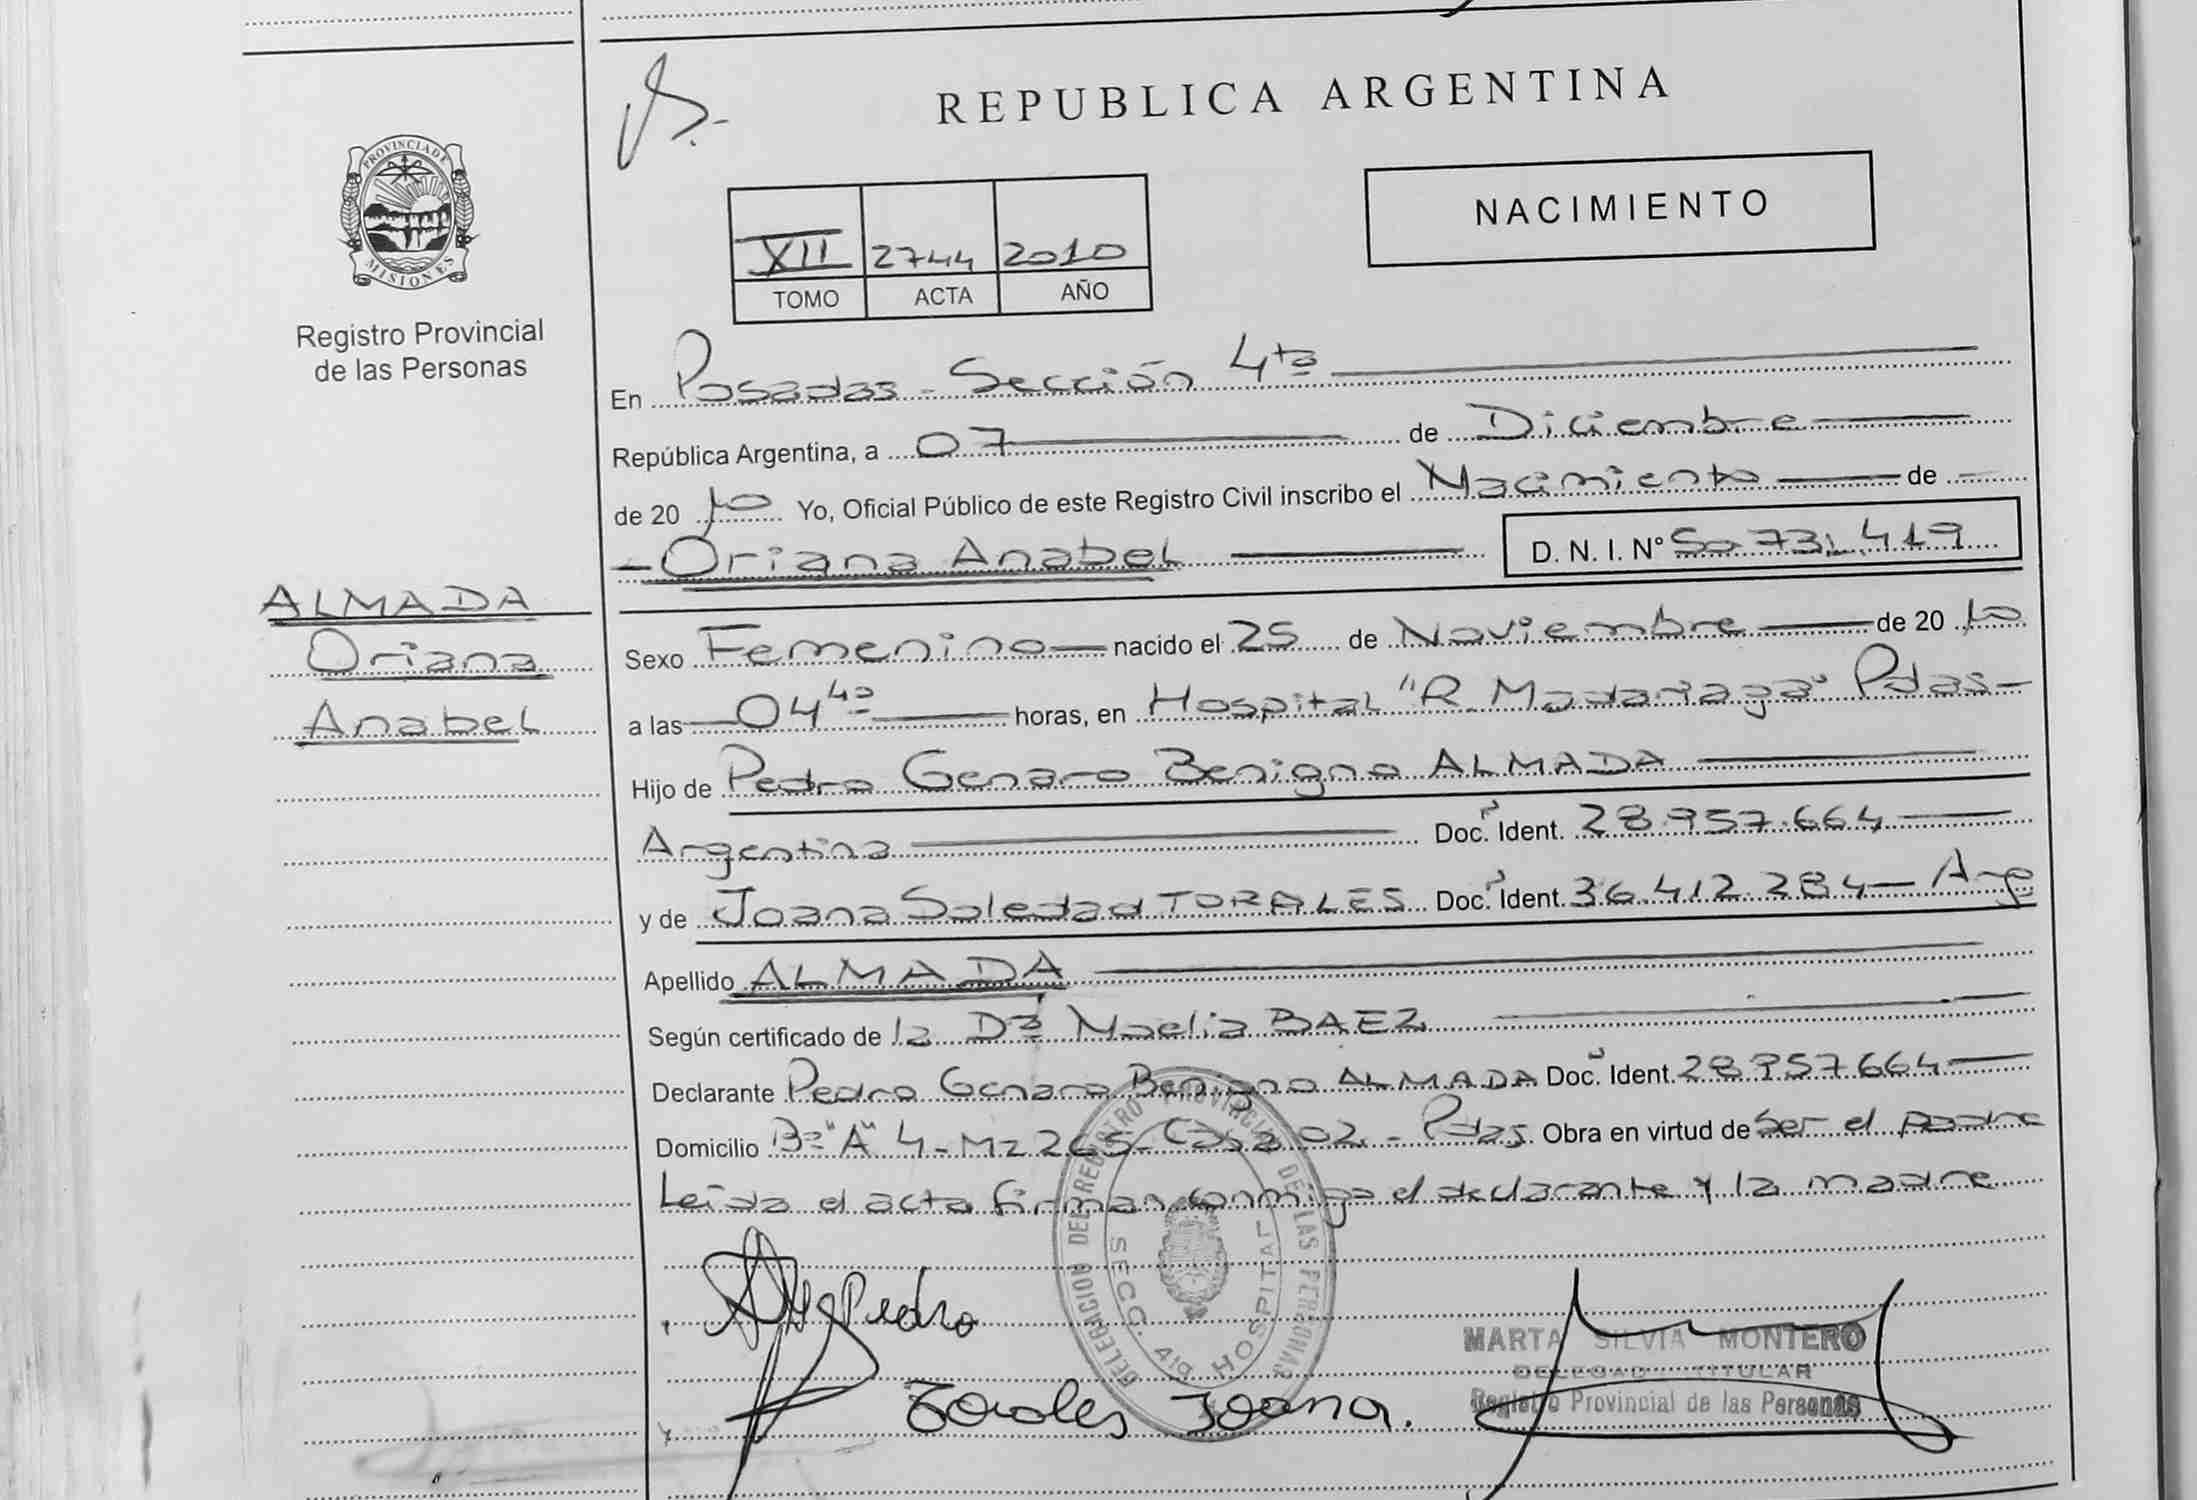 REPUBLICA ARGENTINA
PROVINCIA DE
MISIONES
Registro Provincial
de las Personas
NACIMIENTO
XII 2744 2010
TOMO ACTA AÑO
En Posadas - Sección 4ta
República Argentina, a 07 de Diciembre
de 2010 Yo, Oficial Público de este Registro Civil inscribo el Nacimiento de
- Oriana Anabel D. N. I. Nº 50.731.419
ALMADA
Oriana
Anabel
Sexo Femenino nacido el 25 de Noviembre de 2010
a las 04 40 horas, en Hospital "R. Madariaga" Pdas-
Hijo de Pedro Genaro Benigno ALMADA
Argentina Doc. Ident. 28.957.664
y de Joana Soledad TORALES Doc. Ident. 36.412.284 - Arg
Apellido ALMADA
Según certificado de la Dra Noelia BAEZ
Declarante Pedro Genaro Benigno ALMADA Doc. Ident. 28.957.664
Domicilio Bº "A" 4 - Mz 265 - Casa 02 - Pdas Obra en virtud de ser el padre
Leida el acta firman conmigo el declarante y la madre
DELEGACION DEL REGISTRO PROVINCIAL DE LAS PERSONAS
SECC. 4ta HOSPITAL
Pedro
Torales Joana.
MARTA SILVIA MONTERO
DELEGADA TITULAR
Registro Provincial de las Personas